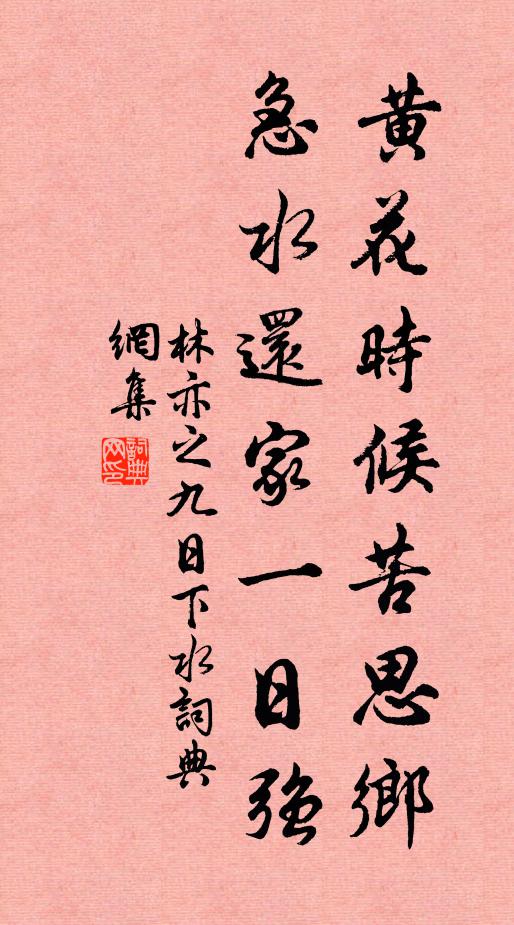 黄花時候苦思鄉
急水還家一日強
林亦之九日下水詞典
網集
詞典网印